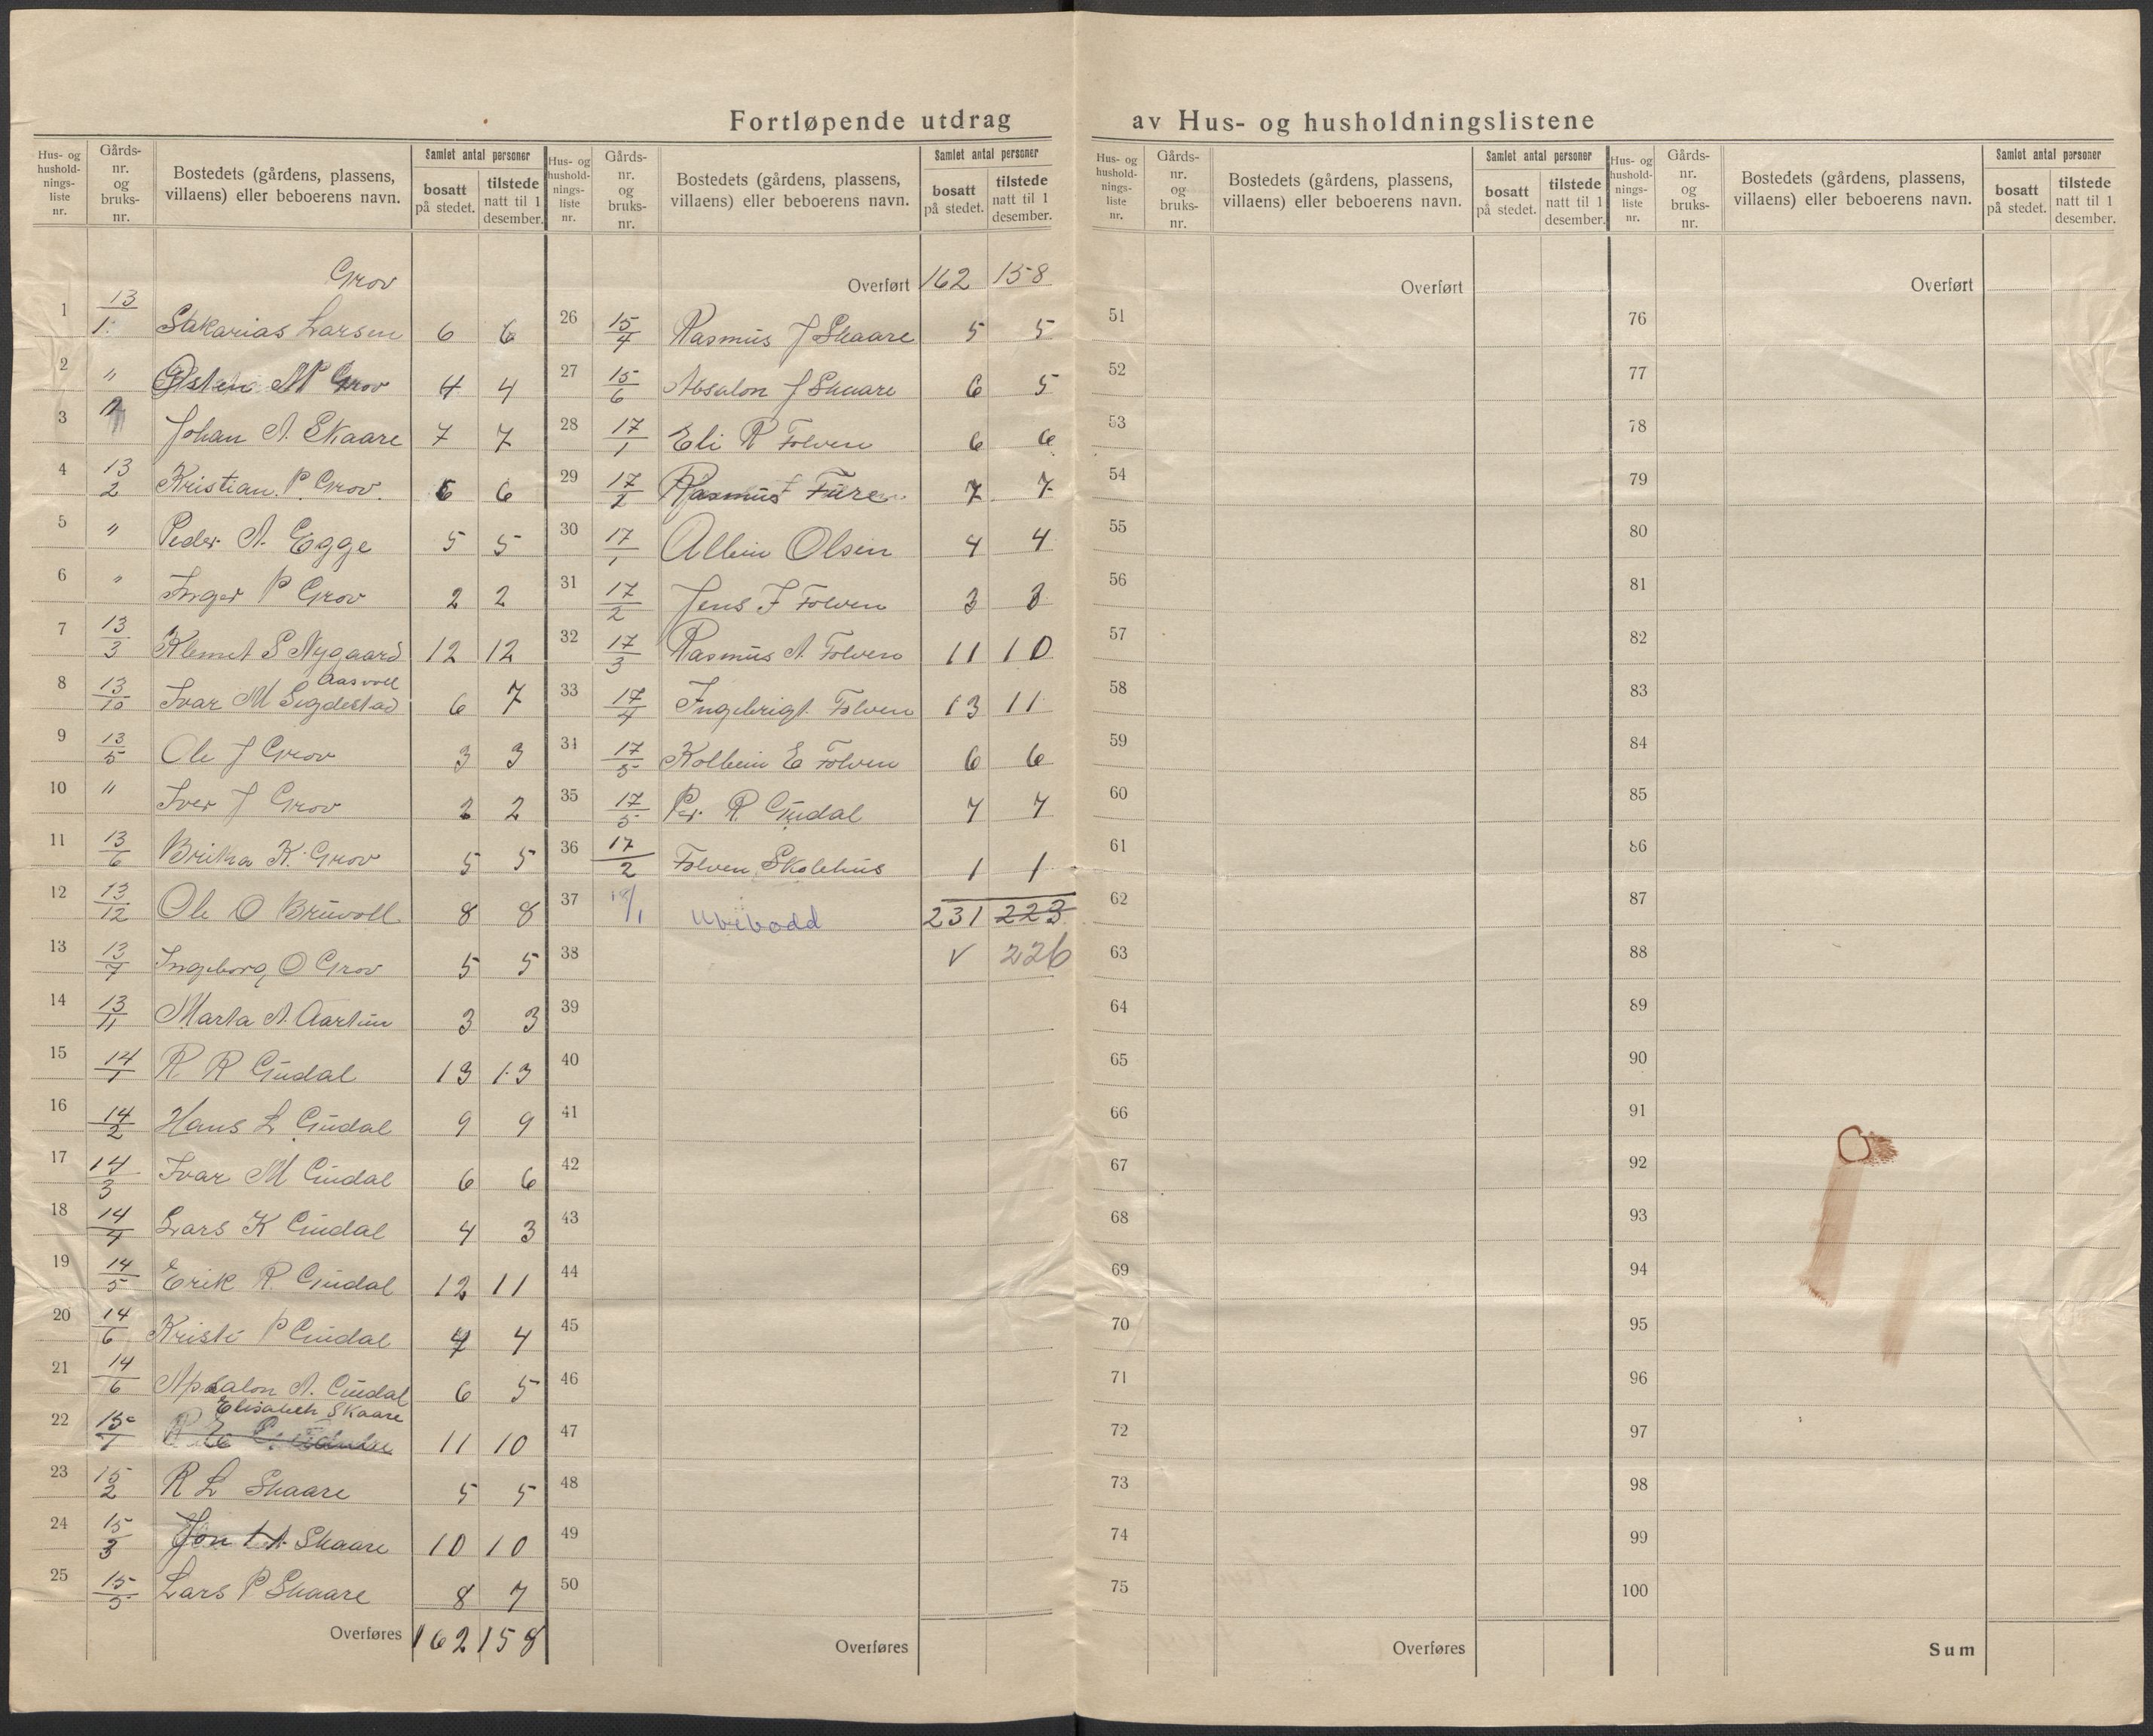 Fortløpende utdrag av Hus- og husholdningslistene
Hus- og husholdnings-liste nr. | Gårds-nr. og bruks-nr. | Bostedets (gårdens, plassens, villaens) eller beboerens navn. | Samlet antal personer | bosatt på stedet. | tilstede natt til 1 desember.
Grov
1 13/1 Sakarias Larsen 6 6
2 " Østen M P Grov 4 4
3 " Johan A. Skaare 7 7
4 13/2 Kristian P. Grov. 6 6
5 " Peder A. Egge 5 5
6 " Inger P Grov 2 2
7 13/3 Klemet S Nygaard 12 12
Aasvoll
8 13/10 Ivar M Sigdestad 6 7
9 13/5 Ole J Grov 3 3
10 " Iver J Grov 2 2
11 13/6 Britha K. Grov 5 5
12 13/12 Ole O Bruvoll 8 8
13 13/7 Ingeborg O Grov 5 5
14 13/11 Marta A. Aartun 3 3
15 14/1 R R Gudal 13 13
16 14/2 Hans L Gudal 9 9
17 14/3 Ivar M Gudal 6 6
18 14/4 Lars K Gudal 4 3
19 14/5 Erik R. Gudal 12 11
20 14/6 Kristi P Gudal 4 4
21 14/6 Apsalon A. Gudal 6 5
Elisabeth Skaare
22 15/1 11 10
23 15/2 R L Skaare 5 5
24 15/3 Jon A Skaare 10 10
25 15/5 Lars P Skaare 8 7
Overføres 162 158
Hus- og husholdnings-liste nr. | Gårds-nr. og bruks-nr. | Bostedets (gårdens, plassens, villaens) eller beboerens navn. | Samlet antal personer | bosatt på stedet. | tilstede natt til 1 desember.
Overført 162 158
26 15/4 Rasmus J Skaare 5 5
27 15/6 Absalon J Skaare 6 5
28 17/1 Eli R Folven 6 6
29 17/2 Rasmus J Fure 7 7
30 17/1 Albin Olsen 4 4
31 17/2 Jens J Folven 3 3
32 17/3 Rasmus A. Folven 11 10
33 17/4 Ingebrigt Folven 13 11
34 17/5 Kolbein E Folven 6 6
35 17/5 Pr. R. Gudal 7 7
36 17/2 Folven Skolehus 1 1
37 18/1 Ubebodd 231 223
38 √ 226
39
40
41
42
43
44
45
46
47
48
49
50
Overføres
Hus- og husholdnings-liste nr. | Gårds-nr. og bruks-nr. | Bostedets (gårdens, plassens, villaens) eller beboerens navn. | Samlet antal personer | bosatt på stedet. | tilstede natt til 1 desember.
Overført
51
52
53
54
55
56
57
58
59
60
61
62
63
64
65
66
67
68
69
70
71
72
73
74
75
Overføres
Hus- og husholdnings-liste nr. | Gårds-nr. og bruks-nr. | Bostedets (gårdens, plassens, villaens) eller beboerens navn. | Samlet antal personer | bosatt på stedet. | tilstede natt til 1 desember.
Overført
76
77
78
79
80
81
82
83
84
85
86
87
88
89
90
91
92
93
94
95
96
97
98
99
100
Sum